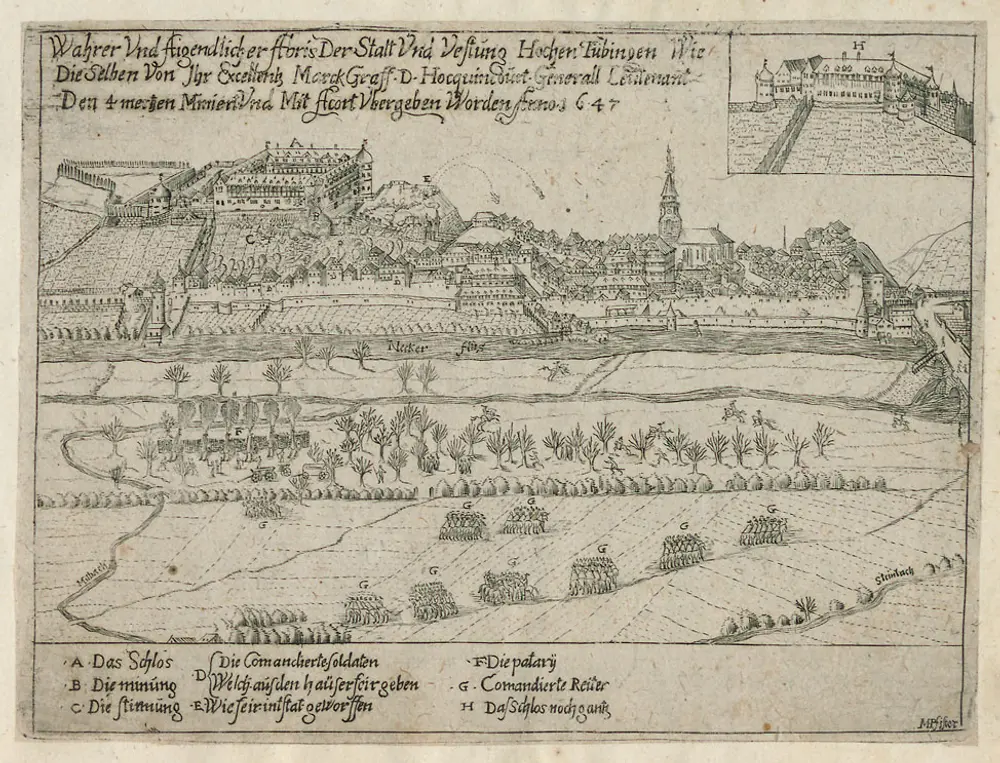 Wahrer Und Aigendlicher Abris Der Statt Und Vestung Hochen Tübingen Wie
Die Selben Von Ihr Excellentz Marck Graff D Hocquincourt Generall Leütenant
Den 4 mertzen Miniert Und Mit Acort Ubergeben Worden Anno 1647
H
E
B
C
Necker flus
F
G
G
G
G
G
G
G
G
G
Steinlach
A Das Schlos
B Die minüng
C Die stirmüng
D Die Comandierte soldaten
Welch aus den haüser feir geben
E Wie feir in stat geworffen
F Die patarij
G Comandierte Reiter
H Das Schlos noch gantz
MPfister